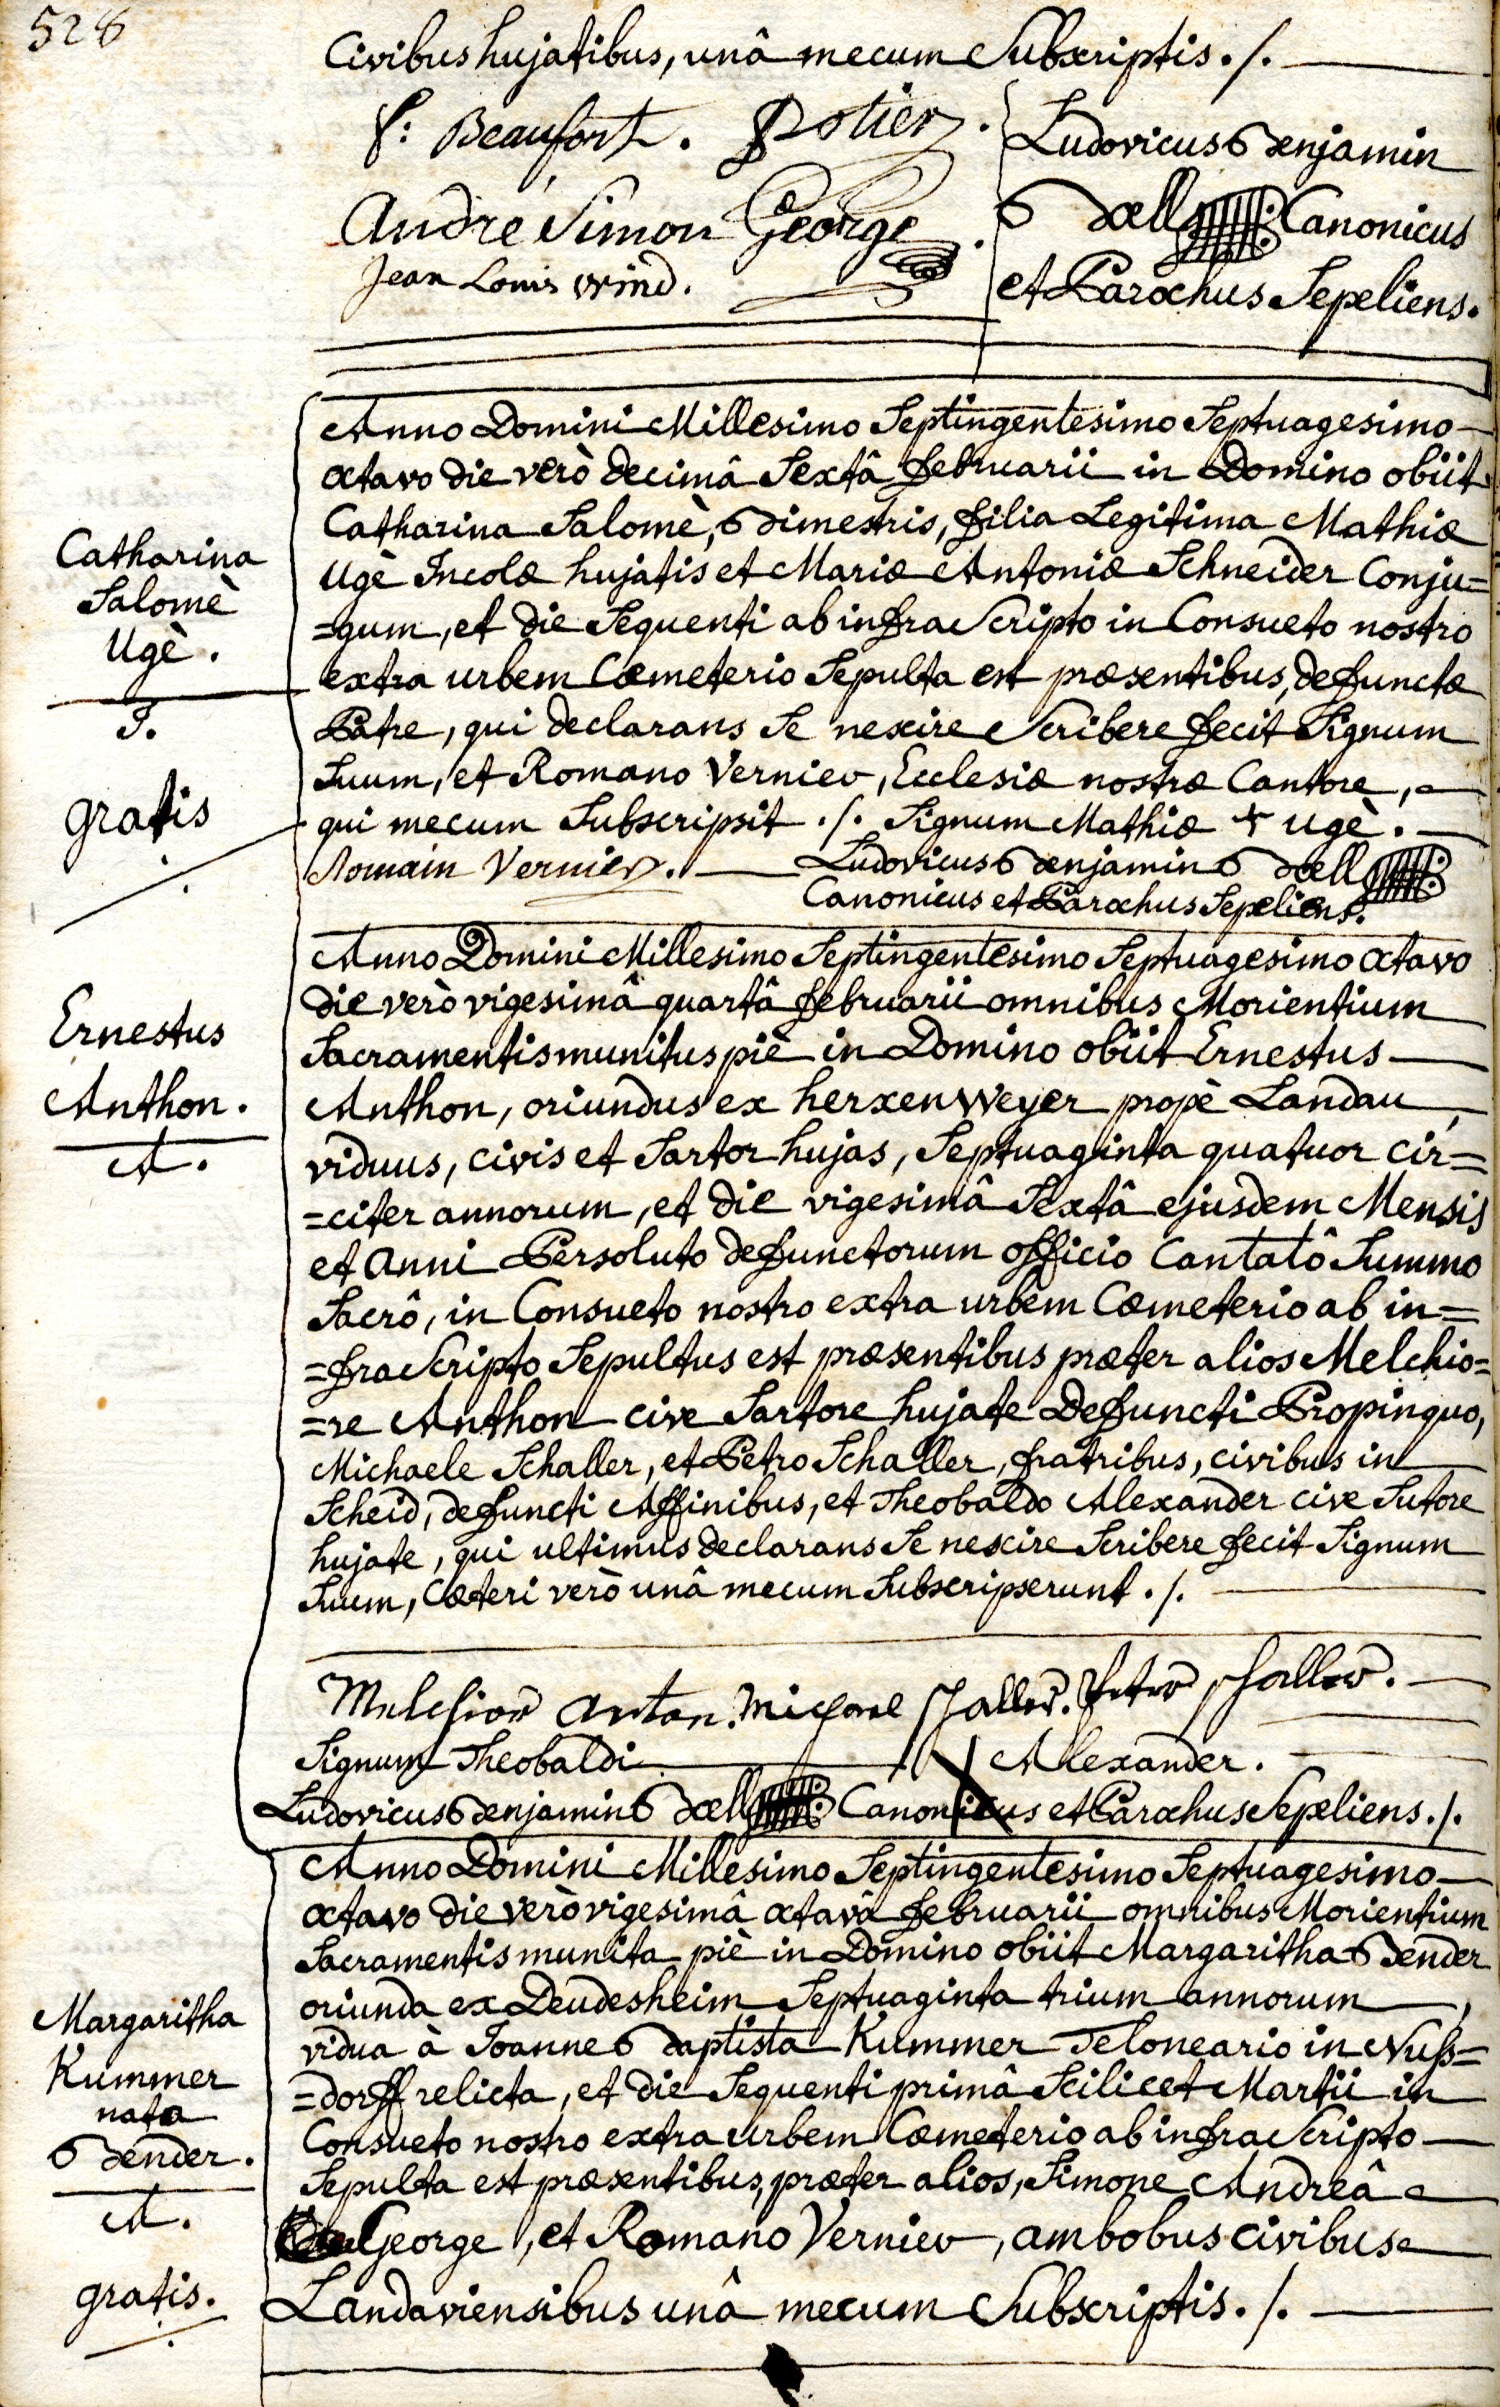 528
Civibus hujatibus, unâ mecum Subscriptis ./.
f: Beaufort. Potier.
André Simon George.
Jean Louis Wind.
Ludovicus Benjamin
Boell Canonicus
et Parochus Sepeliens.
Catharina
Salomè
Ugè.
I.
gratis
Anno Domini Millesimo Septingentesimo Septuagesimo
octavo die verò decimâ Sextâ februarii in Domino obiit
Catharina Salomè, Bimestris, filia Legitima Mathiæ
Ugè Incolæ hujatis et Mariæ Antoniæ Schneider Conju=
=gum, et die Sequenti ab infraScripto in Consueto nostro
extra urbem Cœmeterio Sepulta est præsentibus, defunctæ
Patre, qui declarans Se nescire Scribere fecit Signum
Suum, et Romano Vernier, Ecclesiæ nostræ Cantore,
qui mecum Subscripsit ./. Signum Mathiæ + Ugè.
Romain Vernier. Ludovicus Benjamin Boell
Canonicus et Parochus Sepeliens.
Ernestus
Anthon.
A.
Anno Domini Millesimo Septingentesimo Septuagesimo octavo
die verò vigesimâ quartâ februarii omnibus Morientium
Sacramentis munitus piè in Domino obiit Ernestus
Anthon, oriundus ex herxenweyer propè Landau,
viduus, civis et Sartor hujas, Septuaginta quatuor cir=
=citer annorum, et die vigesimâ Sextâ ejusdem Mensis
et anni Persoluto defunctorum officio Cantatô Summo
Sacrô, in Consueto nostro extra urbem Cœmeterio ab in=
=fraScripto Sepultus est præsentibus præter alios Melchio=
=re Anthon cive Sartore hujate Defuncti Propinquo,
Michaele Schaller, et Petro Schaller, fratribus, civibus in
Scheid, defuncti Affinibus, et Theobaldo Alexander cive Sutore
hujate, qui ultimus declarans Se nescire Scribere fecit Signum
Suum, Cæteri verò unâ mecum Subscripserunt ./.
Melchior Anton. Michael Schaller. Peter Schaller.
Signum Theobaldi X Alexander.
Ludovicus Benjamin Boell Canonicus et Parochus Sepeliens ./.
Margaritha
Kummer
nata
Bender.
A.
gratis.
Anno Domini Millesimo Septingentesimo Septuagesimo
octavo die verò vigesimâ octavâ februarii omnibus Morientium
Sacramentis munita piè in Domino obiit Margaritha Bender
oriunda ex Deudesheim Septuaginta trium annorum,
vidua à Joanne Baptista Kummer Teloneario in Nuß=
=dorff relicta, et die Sequenti primâ Scilicet Martii in
Consueto nostro extra urbem Cœmeterio ab infraScripto
Sepulta est præsentibus, præter alios, Simone Andreâ
George, et Romano Vernier, ambobus civibus
Landaviensibus unâ mecum Subscriptis ./.